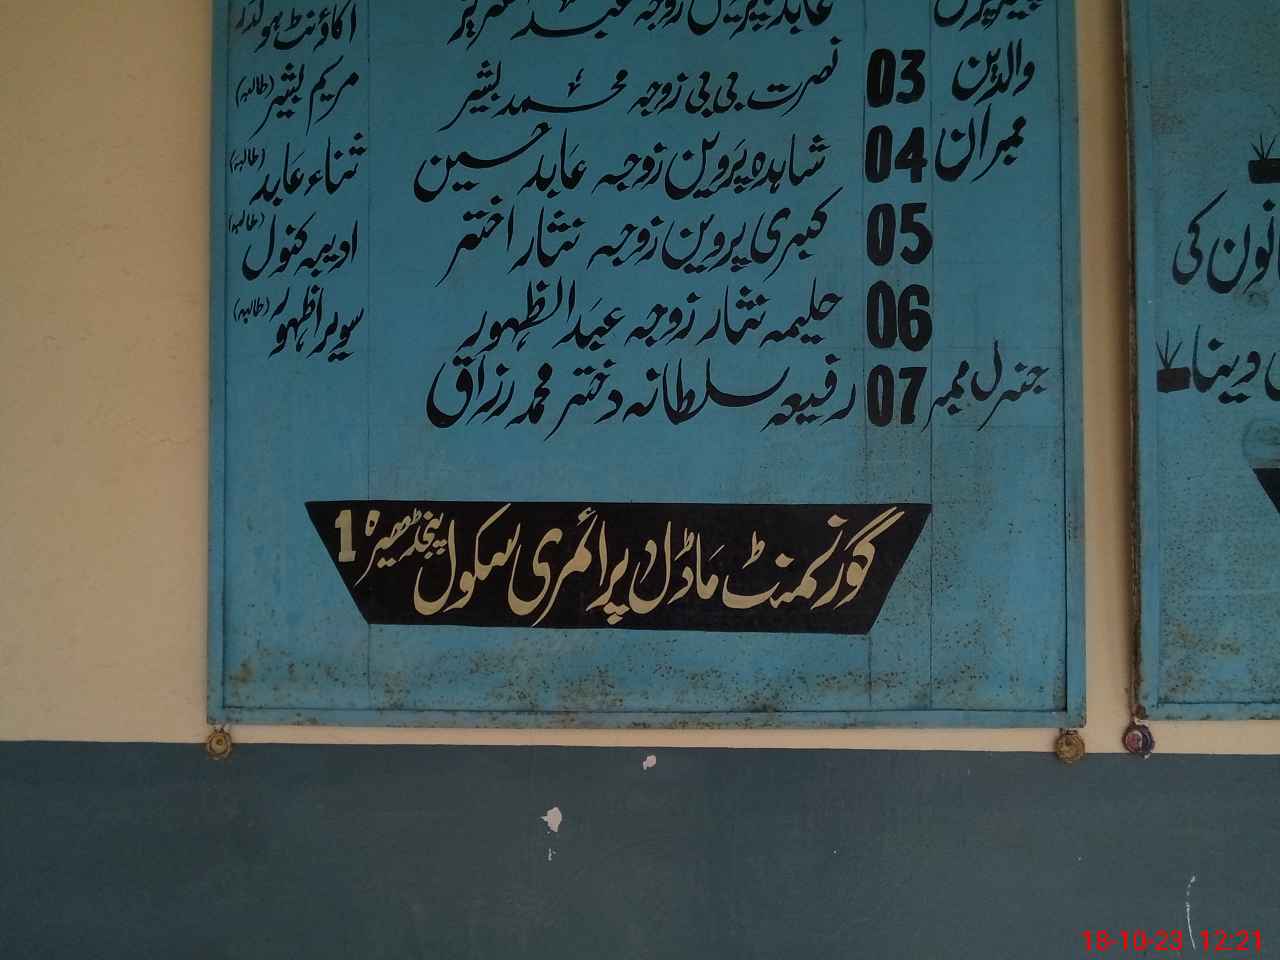 عابدہ پروین زوجہ عبدالعزیز اکاؤنٹ ہولڈر
والدین 03 نصرت بی بی زوجہ محمد بشیر مریم بشیر (طالبہ)
ممبران 04 شاہدہ پروین زوجہ عابد حسین ثناء عابد (طالبہ)
05 کبری پروین زوجہ نثار اختر ادیبہ کنول (طالبہ)
06 حلیمہ نثار زوجہ عبدالظہور سویرا ظہور (طالبہ)
جنرل ممبر 07 رفیعہ سلطانہ دختر محمد رزاق
گورنمنٹ ماڈل پرائمری سکول پنجڈھیرہ 1
کی
دینا
18-10-23 12:21